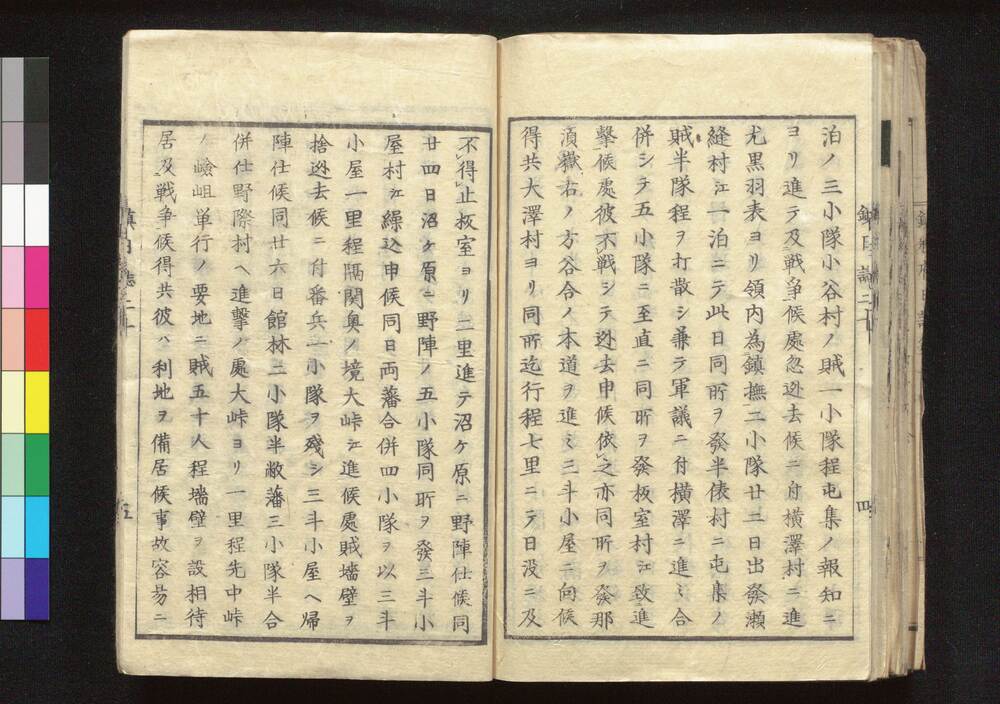 泊ノ三小隊小谷村ノ賊一小隊程屯集ノ報知ニ
ヨリ進テ及戦争候處忽迯去候ニ付横澤村ニ進
尤黒羽表ヨリ領内為鎮撫二小隊廿三日出發瀬
縫村江一泊ニテ此日同所ヲ發半俵村ニ屯集ノ
賊半隊程ヲ打散シ兼テ軍議ニ付横澤ニ進ミ合
併シテ五小隊ニ至直ニ同所ヲ發板室村江致進
撃候處彼不戦シテ迯去申候依之亦同所ヲ發那
須嶽右ノ方谷合ノ本道ヲ進ミ三斗小屋ニ向候
得共大澤村ヨリ同所迄行程七里ニテ日没ニ及
不得止板室ヨリ二里進テ沼ケ原ニ野陣仕候同
廿四日沼ケ原ニ野陣ノ五小隊同所ヲ發三斗小
屋村江繰込申候同日両藩合併四小隊ヲ以三斗
小屋一里程隔関奥ノ境大峠江進候處賊墻壁ヲ
捨迯去候ニ付番兵一小隊ヲ残シ三斗小屋ヘ帰
陣仕候同廿六日館林二小隊半敝藩三小隊半合
併仕野際村ヘ進撃ノ處大峠ヨリ一里程先中峠
ノ嶮岨単行ノ要地ニ賊五十人程墻壁ヲ設相待
居及戦争候得共彼ハ利地ヲ備居候事故容易ニ